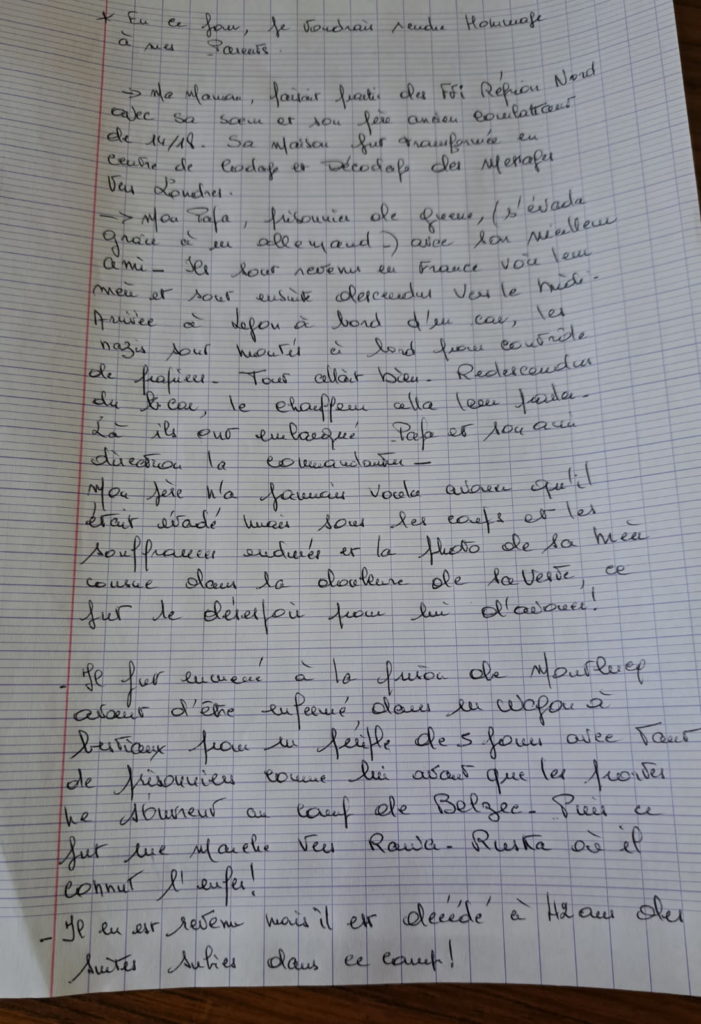 * En ce jour, je voudrais rendre Hommage
à mes Parents.
-> Ma Maman, faisait partie des FFI Région Nord
avec sa sœur et son père ancien combattant
de 14/18. Sa Maison fut transformée en
centre de Codage et Décodage des Messages
vers Londres.
-> Mon Papa, prisonnier de guerre, (s'évada
grâce à un allemand-) avec son meilleur
ami- Ils sont revenus en France voir leur
mère et sont ensuite descendus vers le midi-
Arrivée à à bord d'un car, les
nazis sont montés à bord pour contrôle
de papiers- Tout allait bien- Redescendus
du car, le chauffeur alla leur parler-
Là ils ont embarqué Papa et son ami
direction la commandantur-
Mon père n'a jamais voulu avouer qu'il
était évadé mais sous les coups et les
souffrances endurées et la photo de sa mère
cousue dans la doublure de sa veste, ce
fut le désespoir pour lui d'avouer!
- Il fut emmené à la prison de Montluc
avant d'être enfermé, dans un wagon à
bestiaux pour un périple de 5 jours avec tant
de prisonniers comme lui avant que les portes
ne s'ouvrent au camp de Belzec- Puis ce
fut une Marche vers Rawa-Ruska où il
connut l'enfer!
- Il en est revenu mais il est décédé à 42 ans des
suites subies dans ce camp!